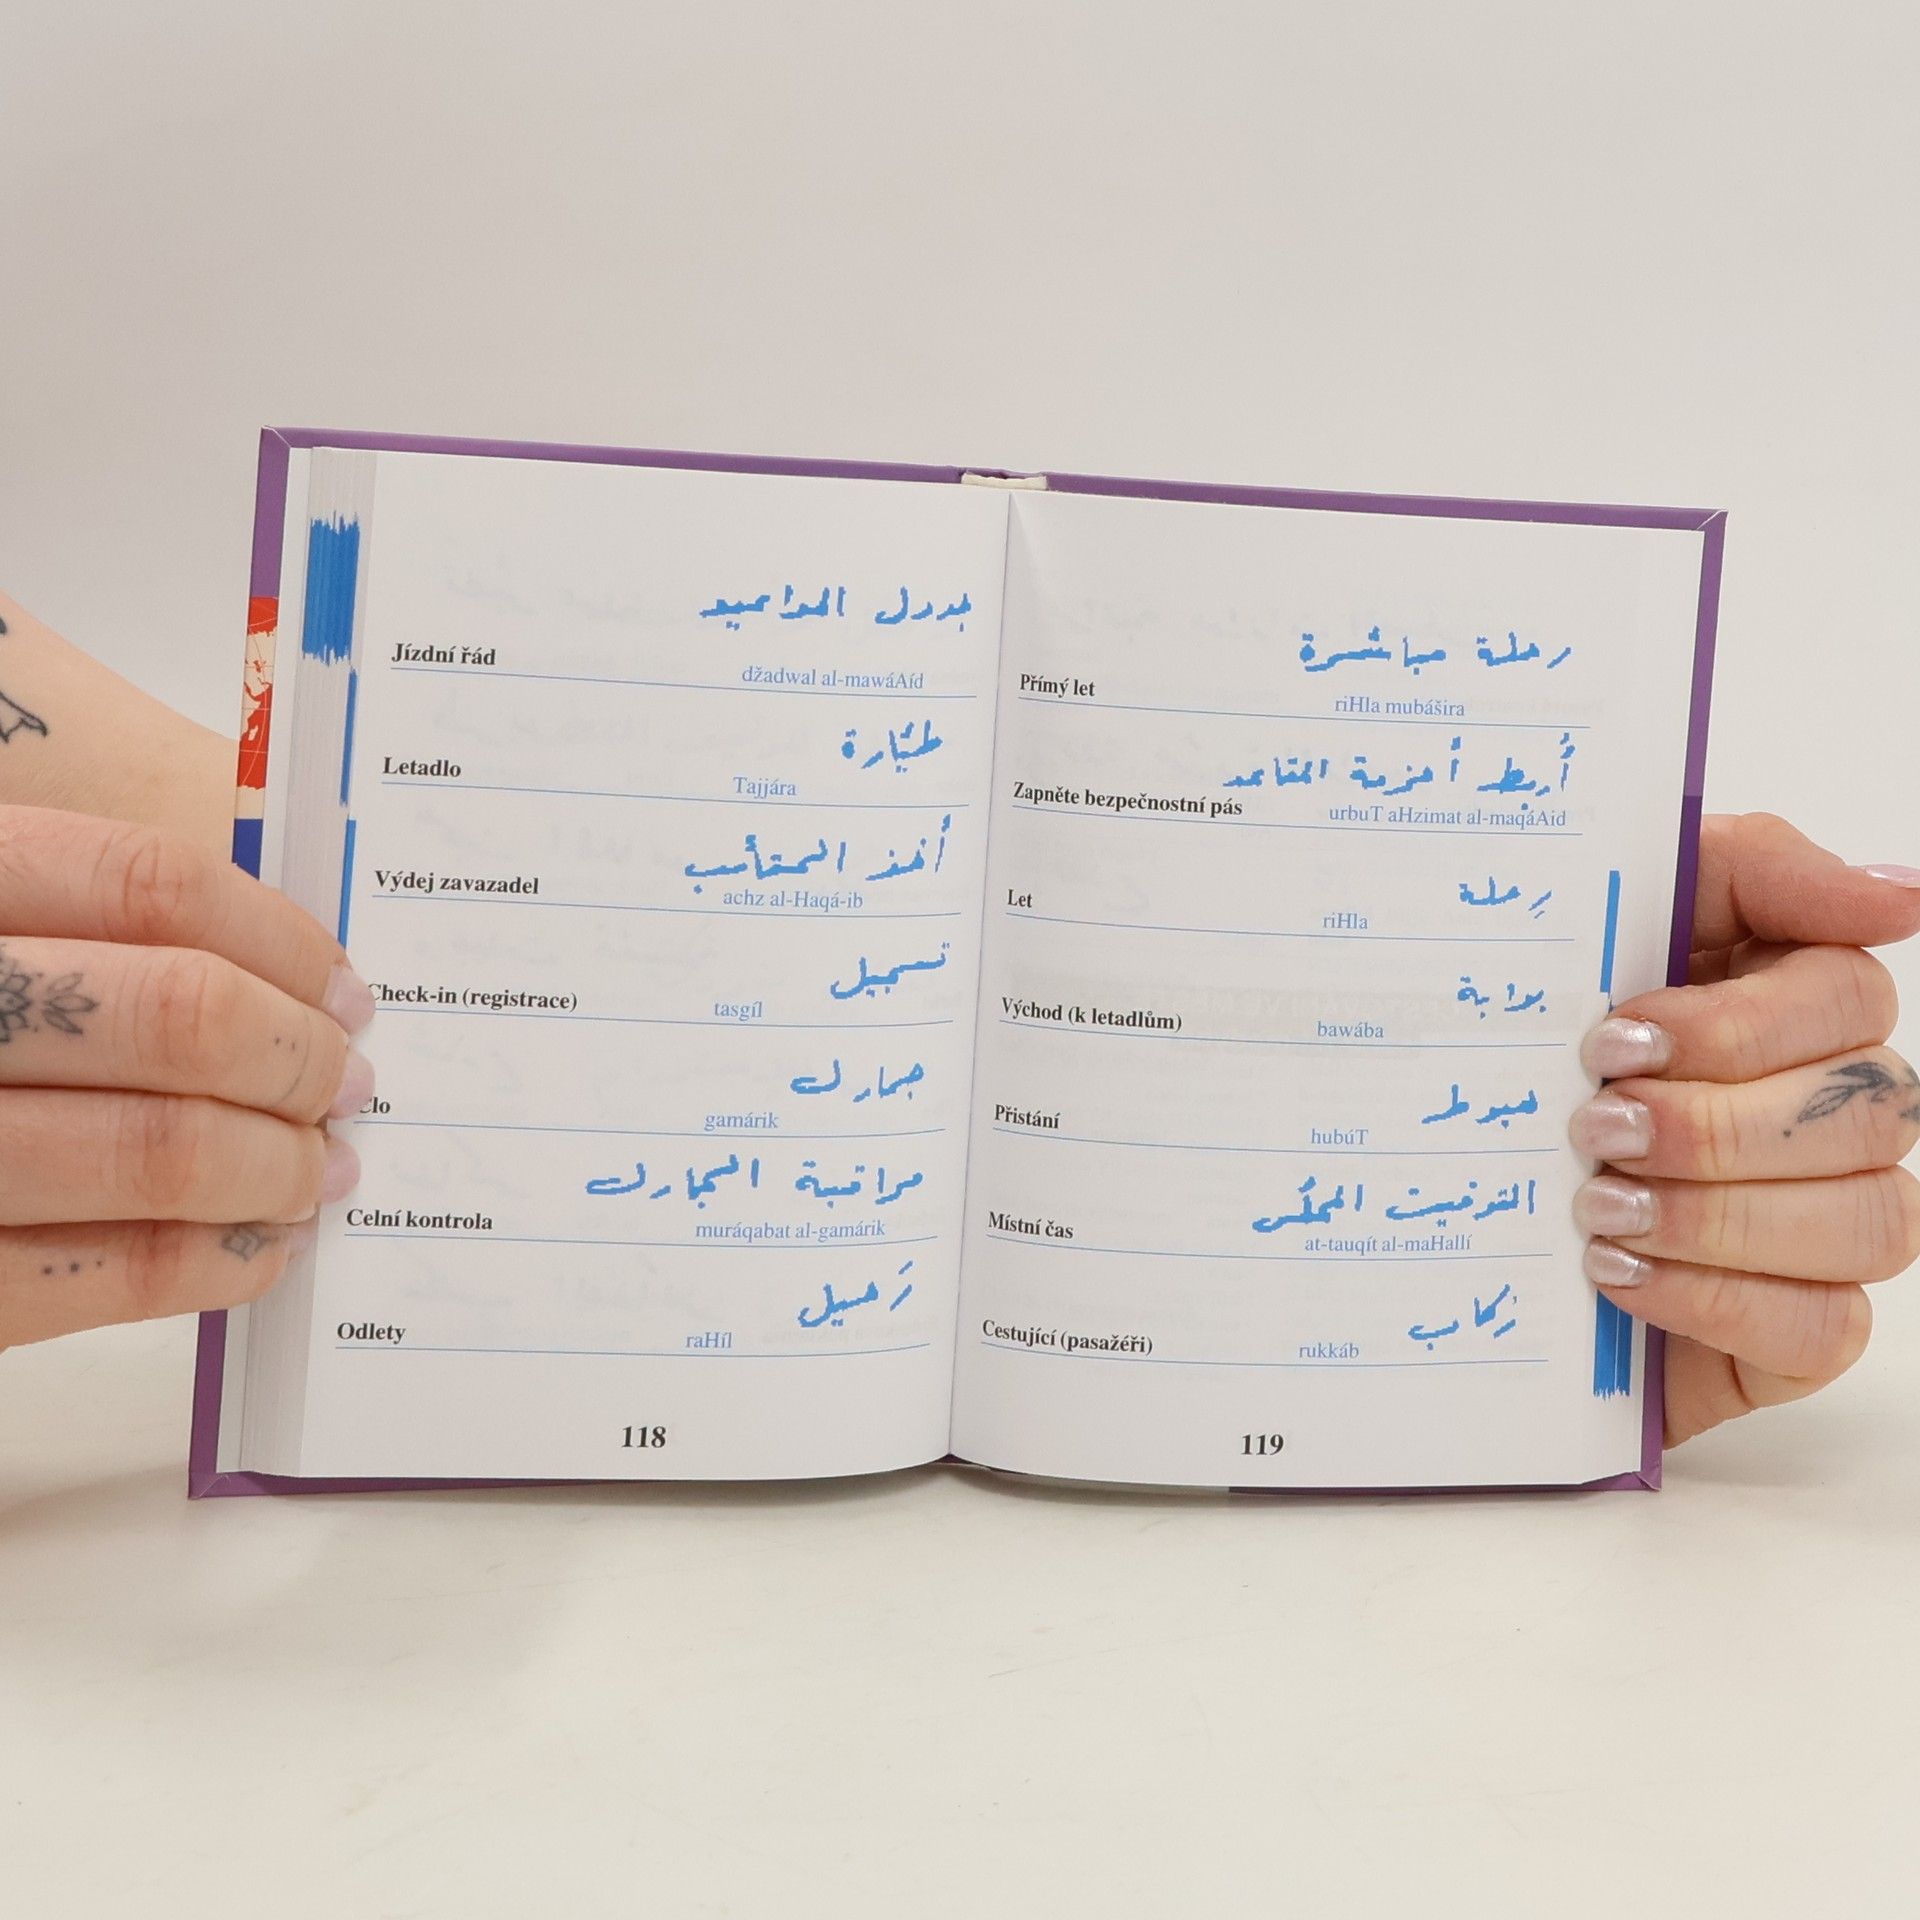 جدول المواعيد
Jízdní řád
džadwal al-mawáAíd
طيّارة
Letadlo
Tajjára
أخذ
Výdej zavazadel
achz al-Haqá-ib
تسجيل
Check-in (registrace)
tasgíl
جمارك
Clo
gamárik
مراقبة الجمارك
Celní kontrola
muráqabat al-gamárik
رَحيل
Odlety
raHíl
118
رحلة مباشرة
Přímý let
riHla mubášira
أُربط أحزمة المقاعد
Zapněte bezpečnostní pás
urbuT aHzimat al-maqáAid
رِحلة
Let
riHla
بوابة
Východ (k letadlům)
bawába
هبوط
Přistání
hubúT
التوقيت المحلّى
Místní čas
at-tauqít al-maHallí
رُكاب
Cestující (pasažéři)
rukkáb
119